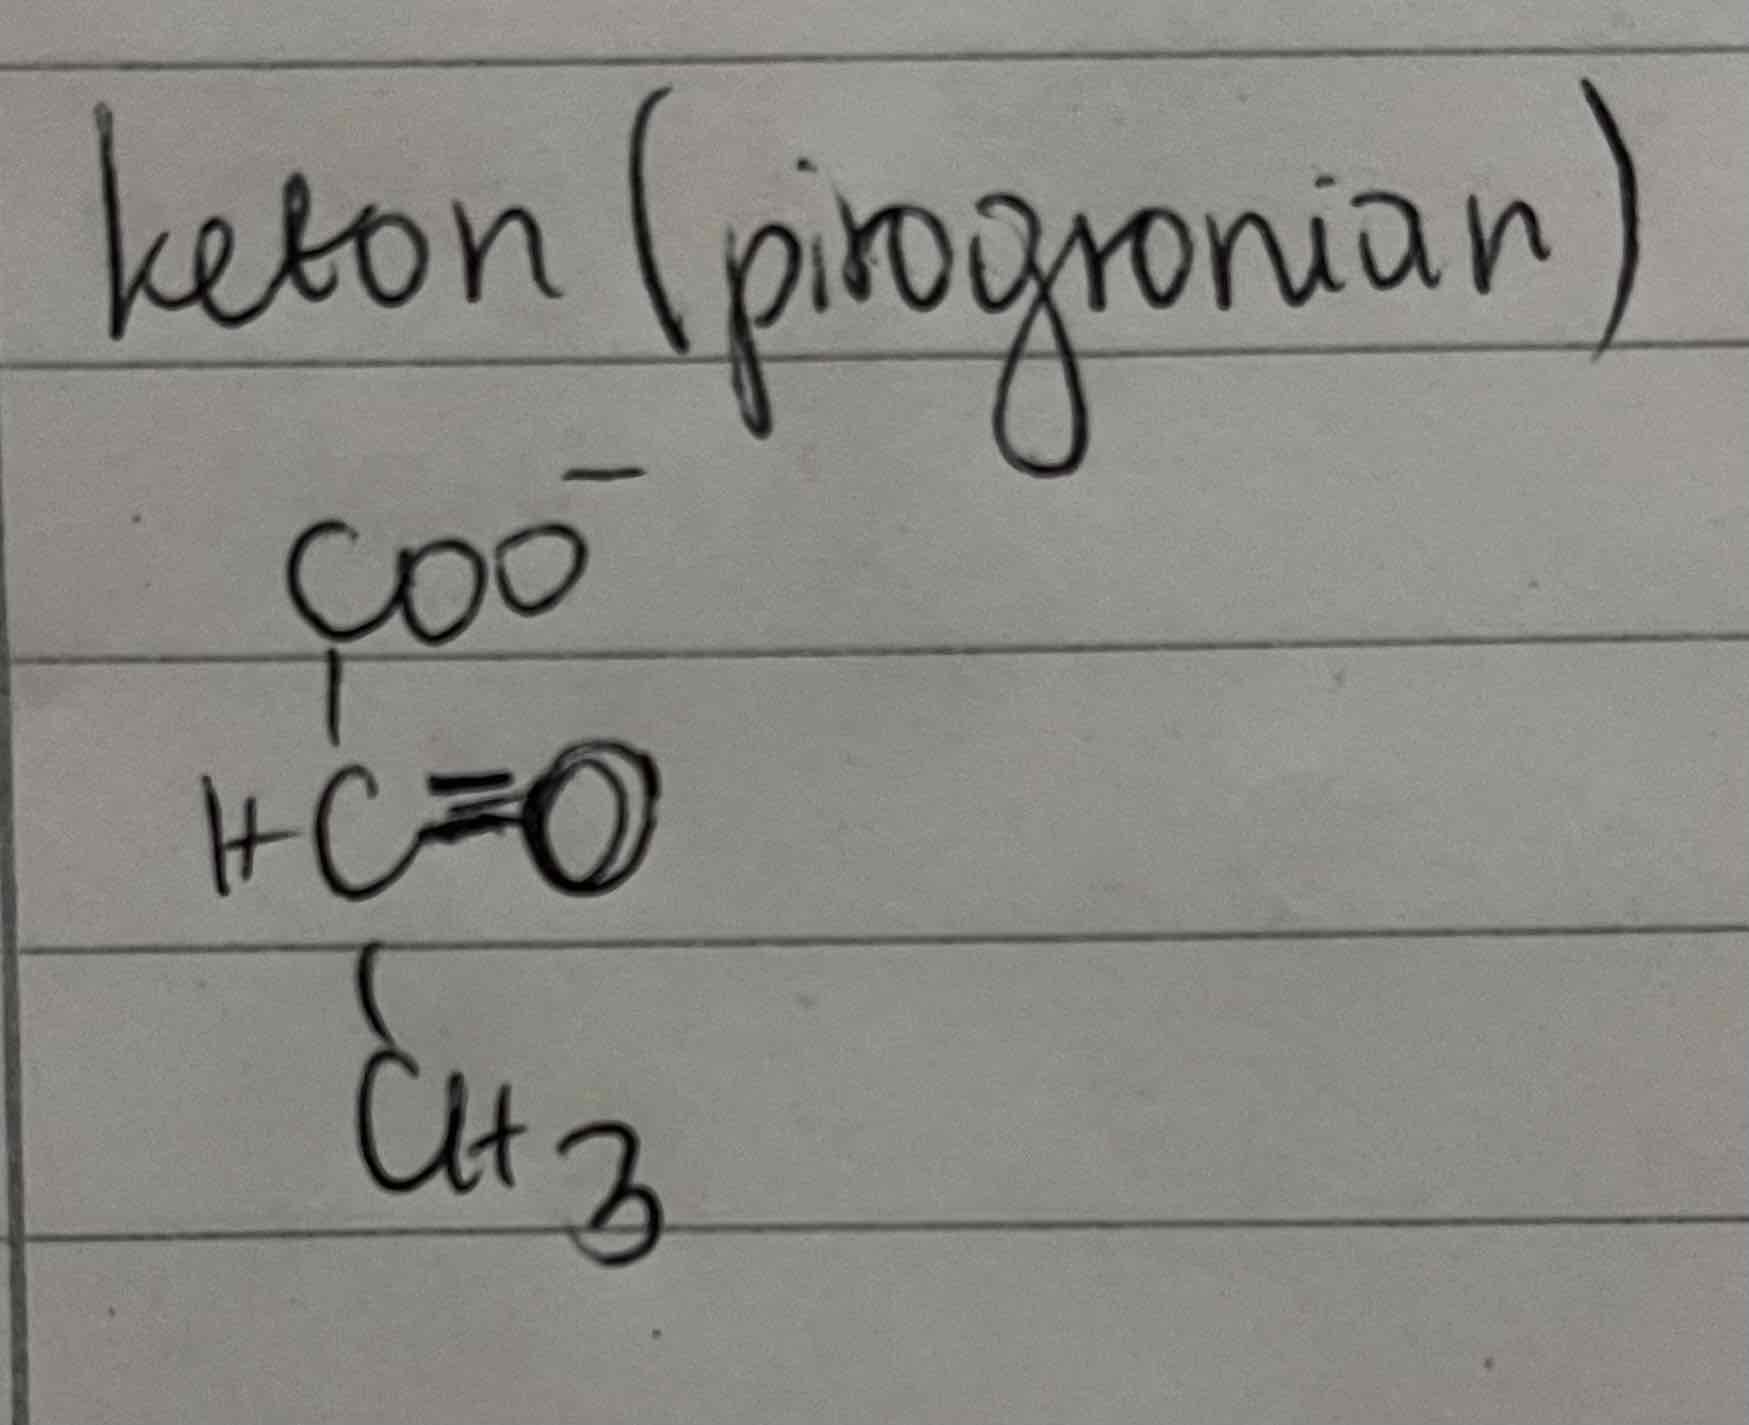 keton (pirogronian)
COO⁻
HC=O
CH₃